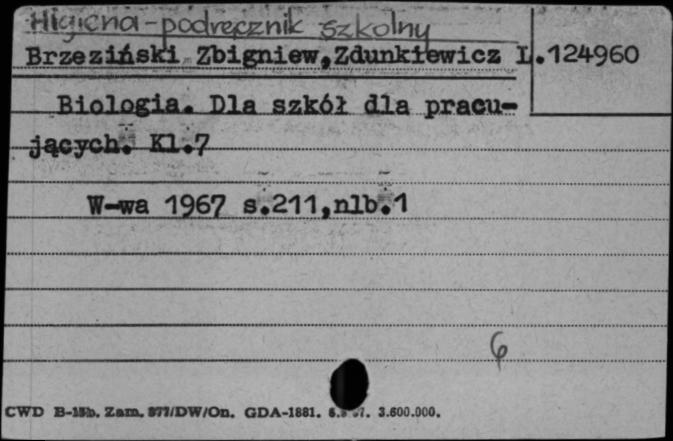 Higiena - podręcznik szkolny
Brzeziński Zbigniew, Zdunkiewicz L. 124960
Biologia. Dla szkół dla pracu-
jących. Kl.7
W-wa 1967 s.211,nlb.1
6
CWD B-15b. Zam. 977/DW/On. GDA-1881. 3.600.000.